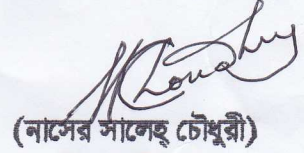 (নাসের সালেহ্ চৌধুরী)